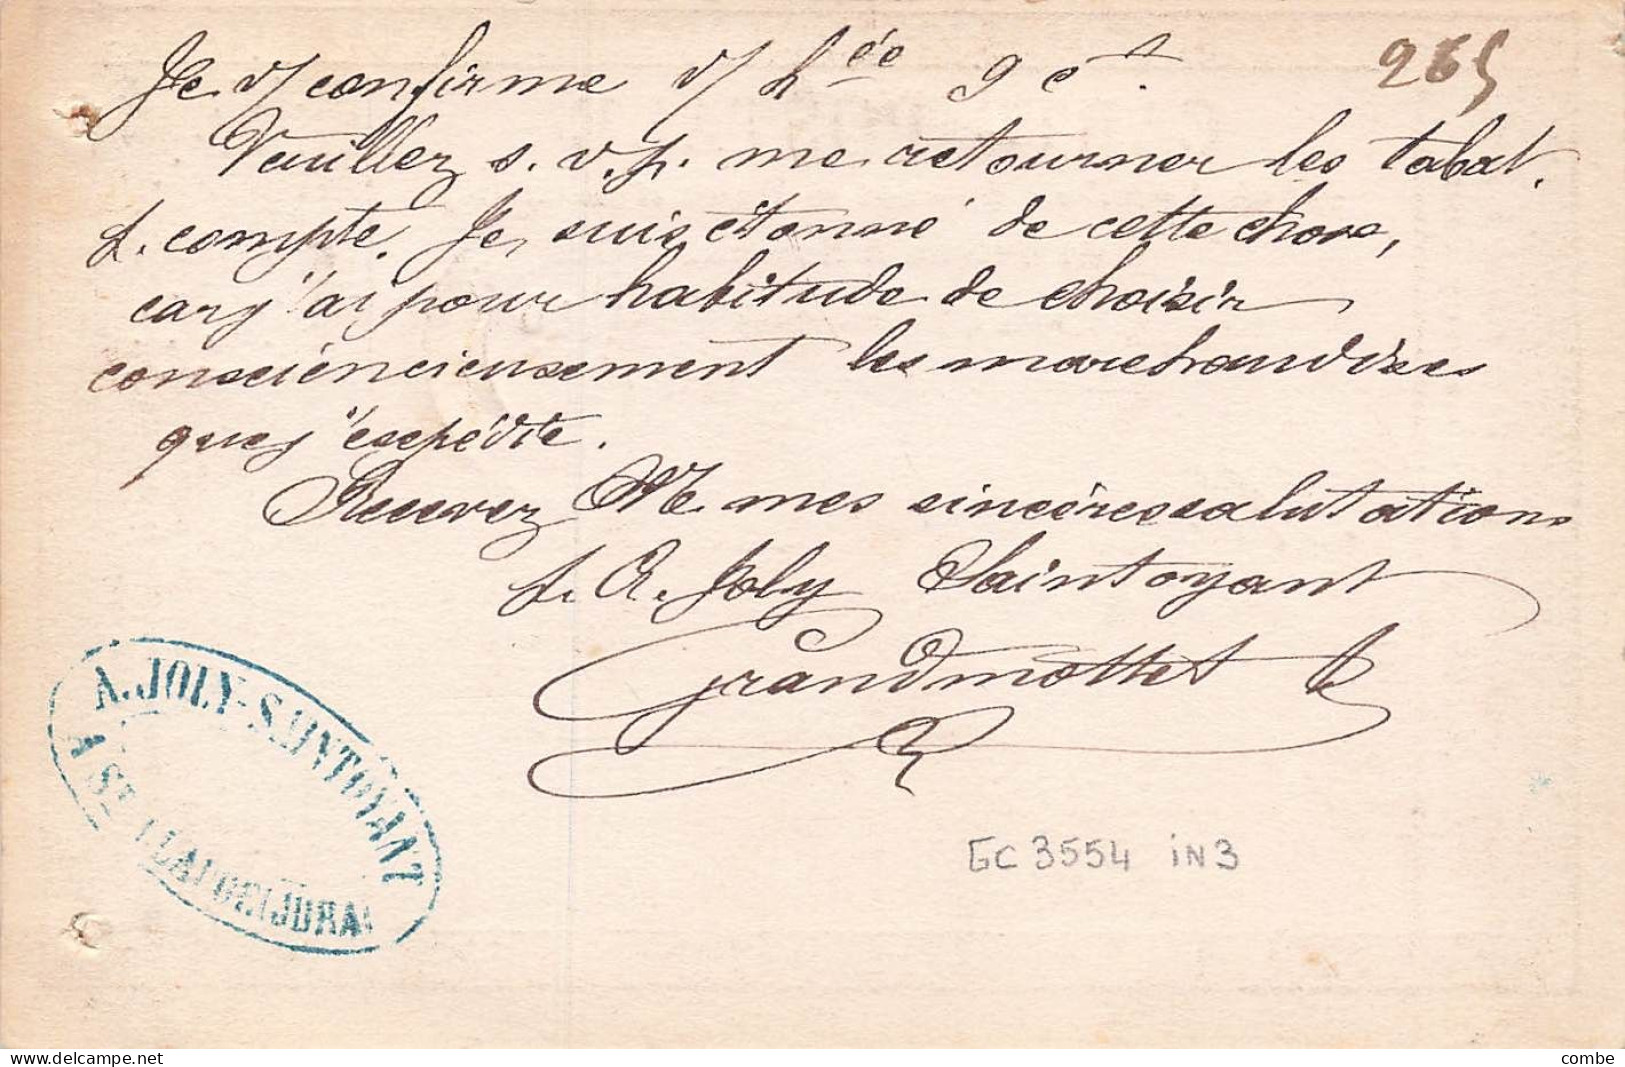 Je v/ confirme v/ hrée 9 ct.
265
Veuillez s. v. p. me retourner les tabat.
p. compte. Je suis étonné de cette chose,
car j'ai pour habitude de choisir
consciencieusement les marchandises
que j'expédie.
Recevez Mr mes sincères salutations
p. A. Joly Saintoyant
Grandmottet
A. JOLY-SAINTOYANT
A ST CLAUDE (JURA)
GC 3554 iN3
delcampe.net
combe